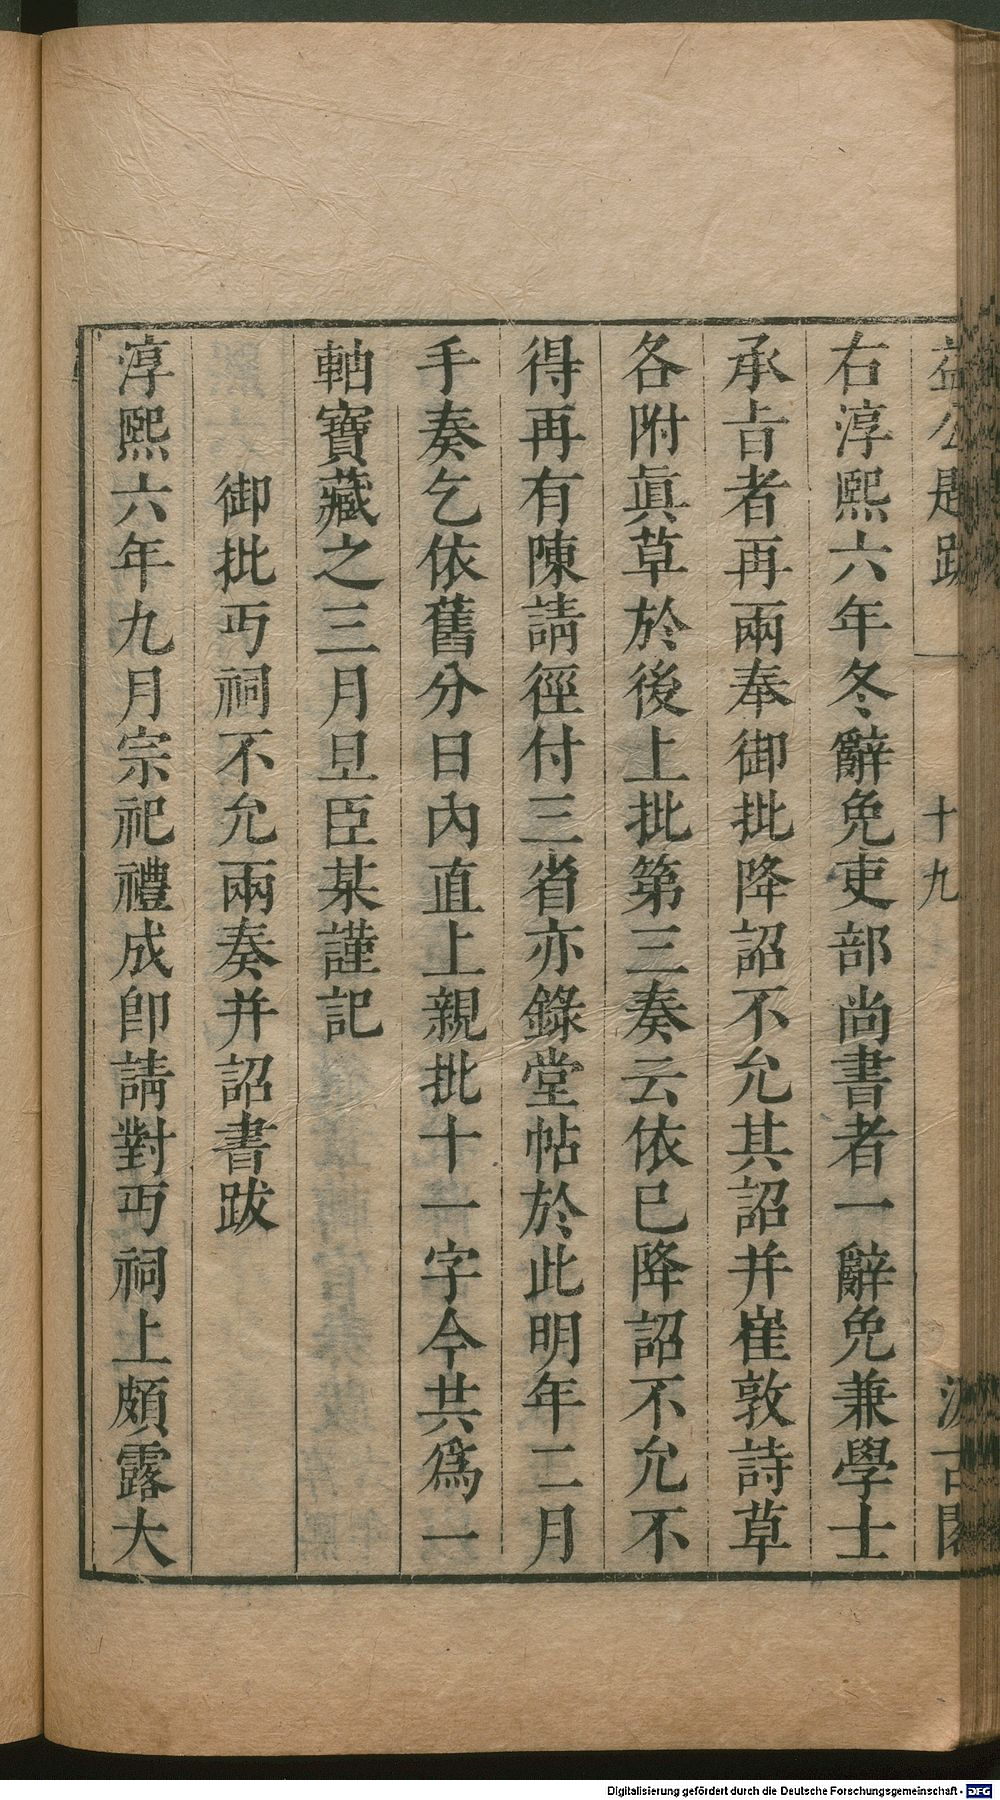 益公題跋 十九 汲古閣
右淳熙六年冬辭免吏部尚書者一辭免兼學士
承旨者再兩奉御批降詔不允其詔并崔敦詩草
各附眞草於後上批第三奏云依已降詔不允不
得再有陳請徑付三省亦錄堂帖於此明年二月
手奏乞依舊分日內直上親批十一字今共爲一
軸寶藏之三月旦臣某謹記
御批丐祠不允兩奏并詔書跋
淳熙六年九月宗祀禮成卽請對丐祠上頗露大
Digitalisierung gefördert durch die Deutsche Forschungsgemeinschaft - DFG